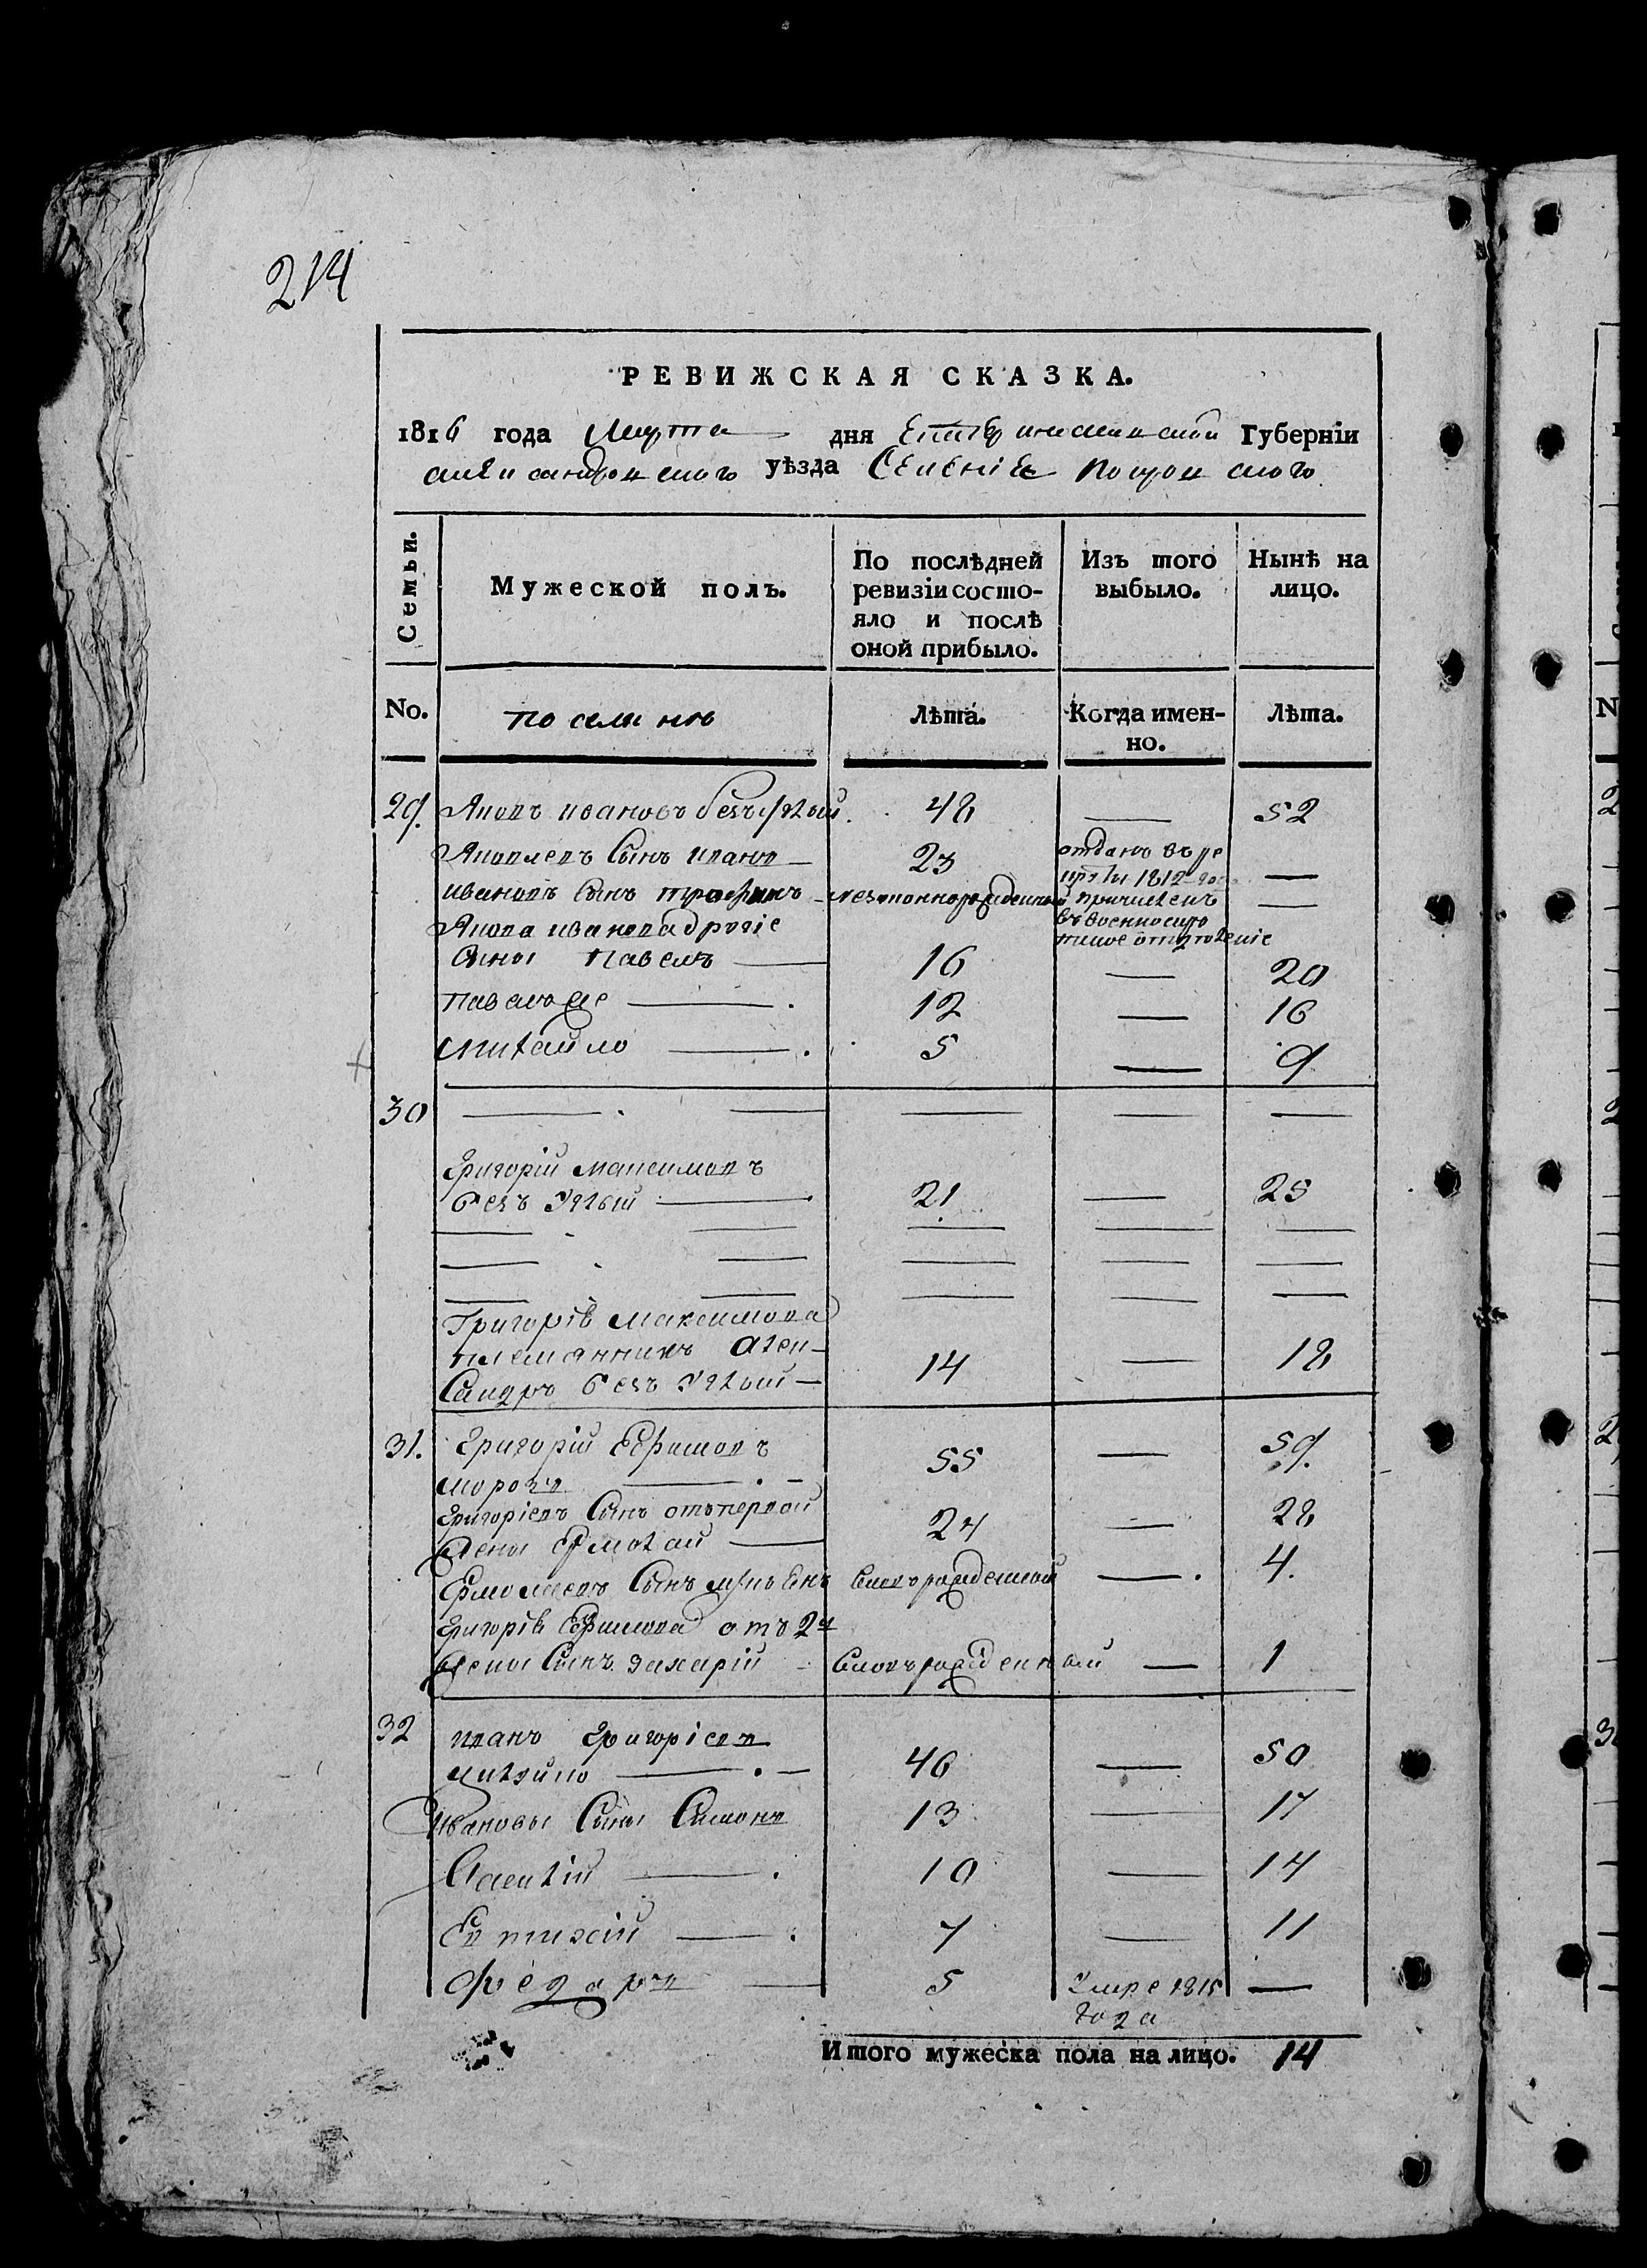 214
РЕВИЖСКАЯ СКАЗКА.
1816 года Марта дня Екатеринославской Губерніи
Александровского уѣзда Селеніе Покровского
Семьи.
Мужеской полъ.
По послѣдней ревизіи состояло и послѣ оной прибыло.
Изъ того выбыло.
Ныне на лицо.
No.
Лѣта.
Когда именно.
Лѣта.
29. Яковъ Ивановъ 48 — 52
Яковлевъ Сынъ Иванъ — 23 отданъ въ рекруты 1812 —
Ивановъ Сынъ Трофимъ — незаконнорожденный причисленъ —
въ военносиротское отделеніе
Якова Иванова другіе
Сыны Павелъ — 16 — 20
Павелъ же — 12 — 16
Михайло — 5 — 9
30 — — — — —
Григорій Максимовъ
21 — 25
— — — — —
— — — — —
— — — — —
Григорія Максимова
племянникъ Алек-
сандръ 14 — 18
31. Григорій Ефимовъ
Морозъ — 55 — 59.
Григоріевъ Сынъ отъ первой
жены Ермолай — 24 — 28
Ермолаевъ Сынъ вновьрожденный — 4.
Григорія Ефимова отъ 2й
жены Сынъ Захарій — вновьрожденный — 1
32 Иванъ Григоріевъ
46 — 50
Ивановы Сыны Симонъ 13 — 17
10 — 14
Евтихій — 7 — 11
Федоръ — 5 умре 1815 —
года
Итого мужеска пола на лицо. 14